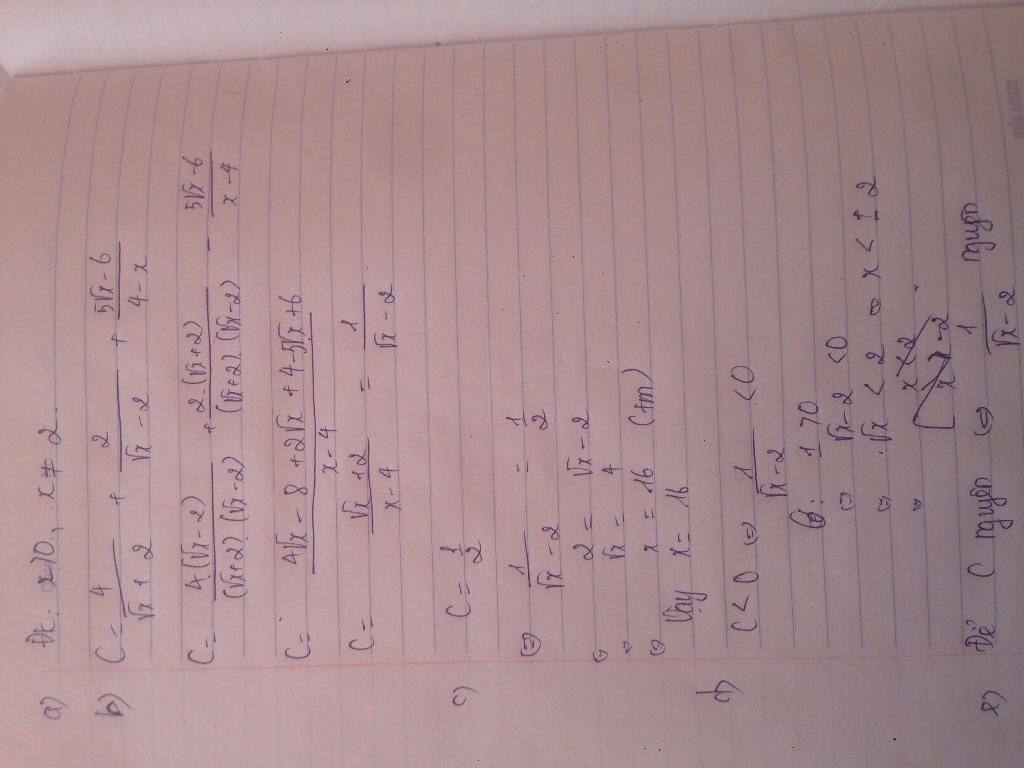 a) Đk: x ≥ 0, x ≠ 2
b) C = 4/(√x + 2) + 2/(√x - 2) + (5√x - 6)/(4 - x)
C = 4(√x - 2)/((√x + 2).(√x - 2)) + 2.(√x + 2)/((√x + 2).(√x - 2)) - (5√x - 6)/(x - 4)
C = (4√x - 8 + 2√x + 4 - 5√x + 6)/(x - 4)
C = (√x + 2)/(x - 4) = 1/(√x - 2)
c) C = 1/2
⇔ 1/(√x - 2) = 1/2
⇔ 2 = √x - 2
⇔ √x = 4
⇔ x = 16 (tm)
Vậy x = 16
d) C < 0 ⇔ 1/(√x - 2) < 0
1 > 0
⇔ √x - 2 < 0
⇔ √x < 2 ⇔ x < ± 2
⇔ x < 2
x > -2
e) Để C nguyên ⇔ 1/(√x - 2) nguyên